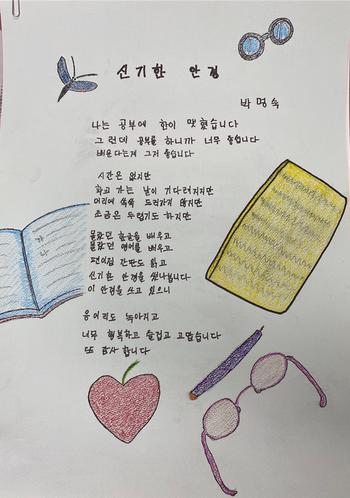 신기한 안경
박명숙
나는 공부에 한이 맺혔습니다
그런데 공부를 하니까 너무 좋습니다
배운다는게 그저 좋습니다
시간은 없지만
학교 가는 날이 기다려지지만
머리에 쏙쏙 들어가지 않지만
조금은 두렵기도 하지만
몰랐던 한글을 배우고
몰랐던 영어를 배우고
편의점 간판도 읽고
신기한 안경을 썼나봅니다
이 안경을 쓰고 있으니
응어리도 녹아지고
너무 행복하고 즐겁고 고맙습니다
또 감사 합니다